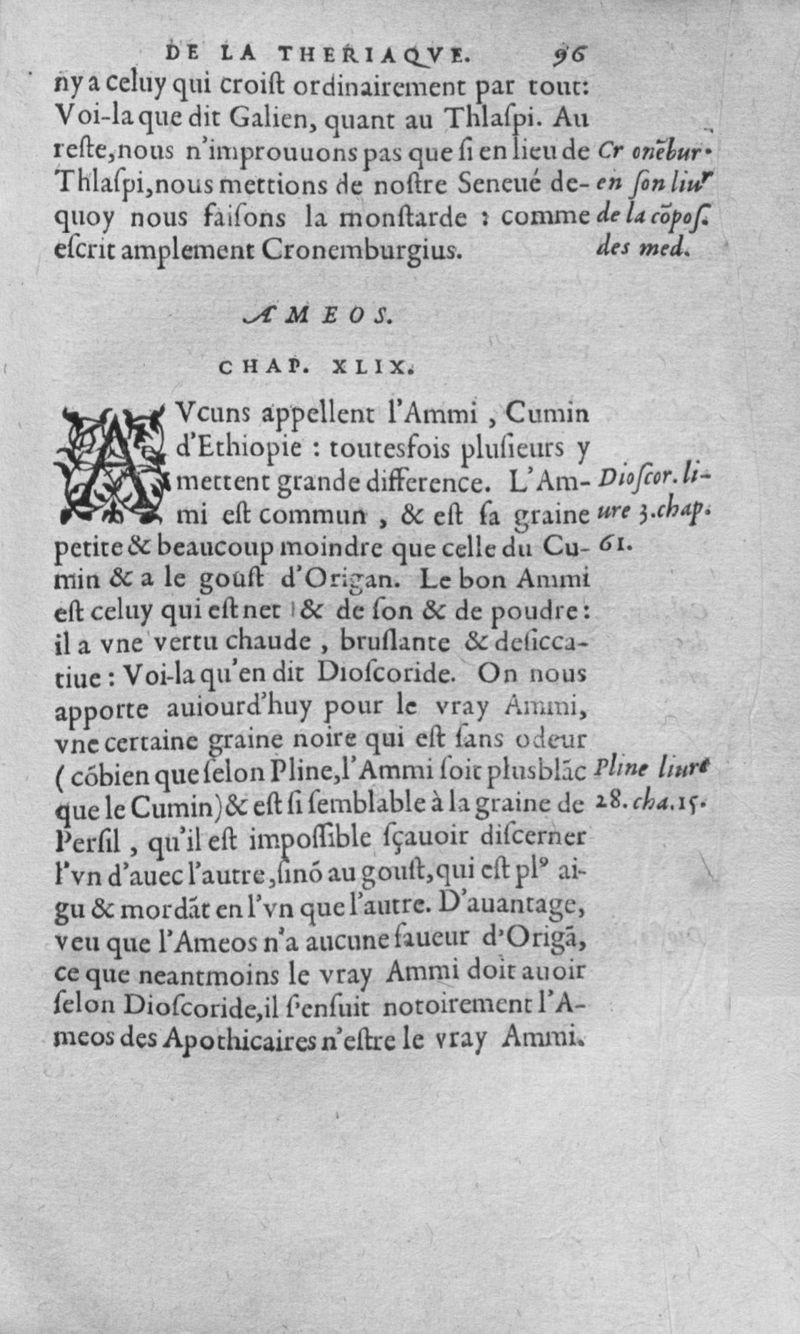 DE LA THERIAQVE. 96
ny a celuy qui croiſt ordinairement par tout:
Voi-la que dit Galien, quant au Thlaſpi. Au
reſte, nous n'improuuons pas que ſi en lieu de
Thlaſpi, nous mettions de noſtre Seneué de-
quoy nous faiſons la monſtarde : comme
eſcrit amplement Cronemburgius.
Cronẽbur.
en ſon liur
de la cõpoſ.
des med.
AMEOS.
CHAP. XLIX.
AVcuns appellent l'Ammi , Cumin
d'Ethiopie : toutesfois pluſieurs y
mettent grande difference. L'Am-
mi eſt commun , & eſt ſa graine
petite & beaucoup moindre que celle du Cu-
min & a le gouſt d'Origan. Le bon Ammi
eſt celuy qui eſt net & de ſon & de poudre:
il a vne vertu chaude , bruſlante & deſicca-
tiue : Voi-la qu'en dit Dioſcoride. On nous
apporte auiourd'huy pour le vray Ammi,
vne certaine graine noire qui eſt ſans odeur
( cõbien que ſelon Pline, l'Ammi ſoit plus blãc
que le Cumin) & eſt ſi ſemblable à la graine de
Perſil , qu'il eſt impoſſible ſçauoir diſcerner
l'vn d'auec l'autre, ſinõ au gouſt, qui eſt plꝰ ai-
gu & mordãt en l'vn que l'autre. D'auantage,
veu que l'Ameos n'a aucune ſaueur d'Origã,
ce que neantmoins le vray Ammi doit auoir
ſelon Dioſcoride, il ſ'enſuit notoirement l'A-
meos des Apothicaires n'eſtre le vray Ammi.
Dioſcor. li-
ure 3. chap.
61.
Pline liure
28. cha. 15.